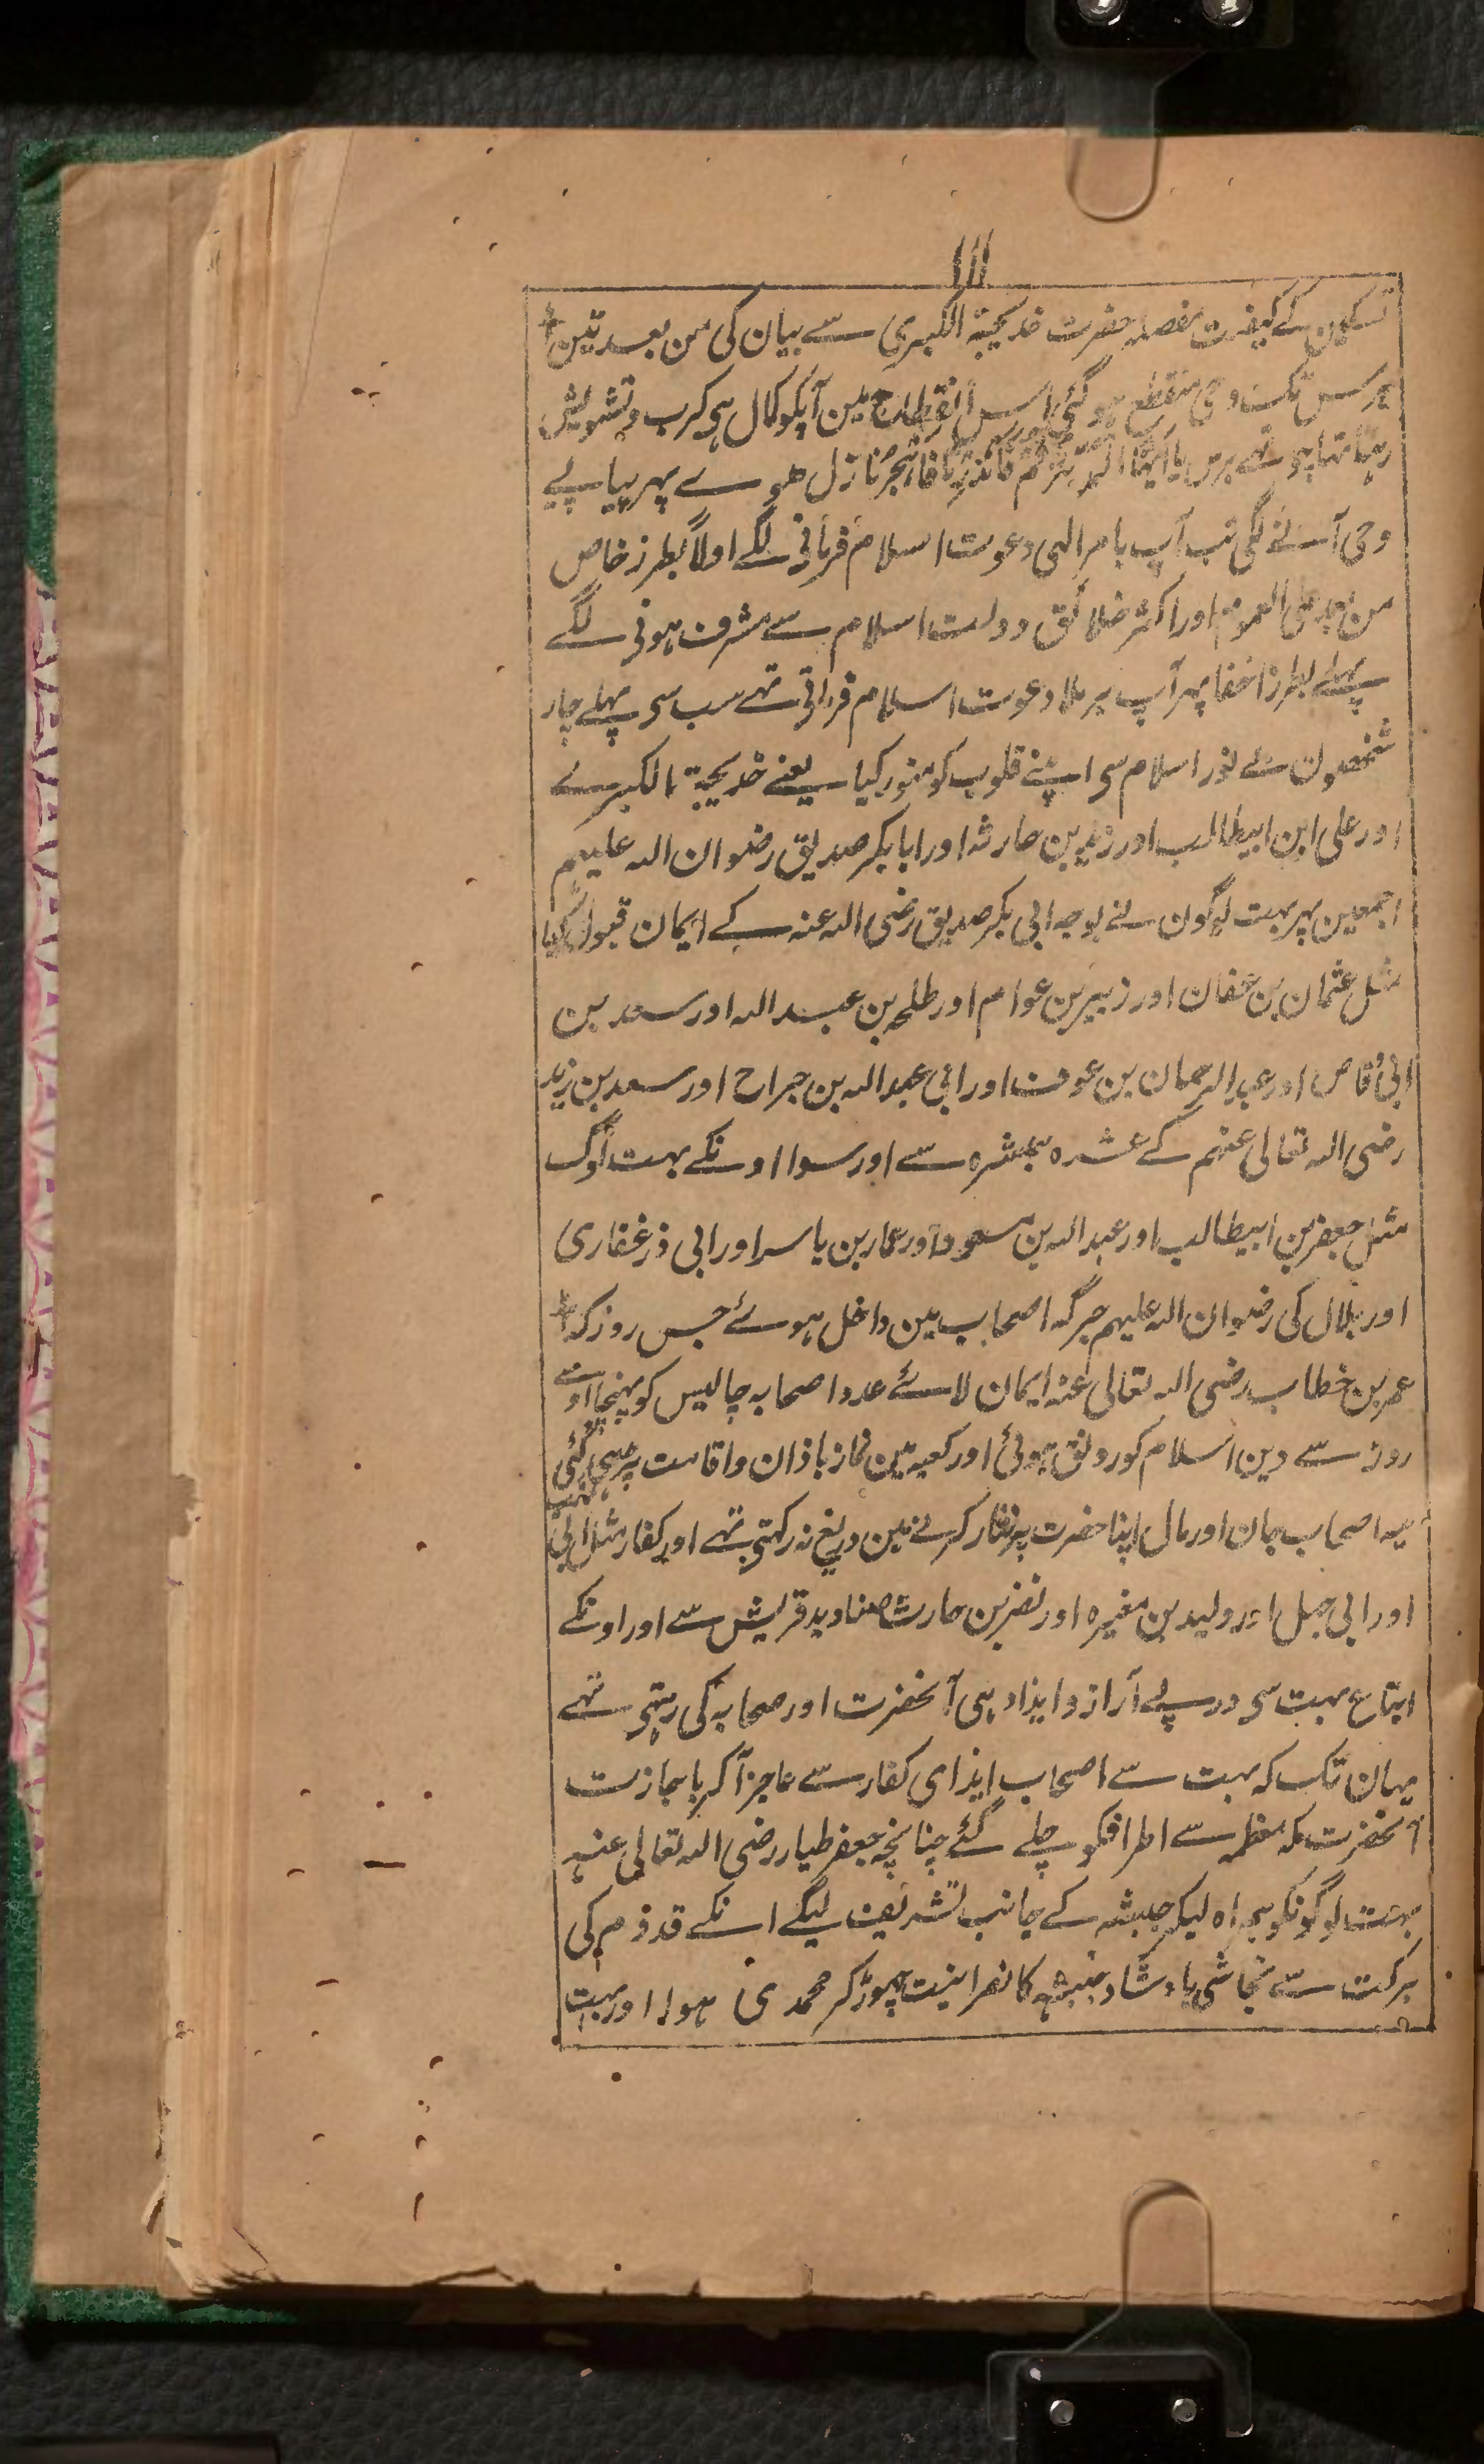 ۱۱۱
تسکین کے کیفیت مفصلہ حضرت خدیجۃ الکبری سے بیان کی من بعد تین
برس تک وحی منقطع ہو گئی اس انقطاع مین آپکو کمال ہی کرب و تشویش
رہتا تہا چوتھے برس یا ایہا المدثر قم فانذر تا فاہجر نازل ھوے پہر پیاپے
وحی آنے لگی تب آپ بامر الہی دعوت اسلام فرمانی لگے اولاً بطرز خاص
من بعد علی العموم اور اکثر خلائق دولت اسلام سے مشرف ہونی لگے
پہلے بطرز اخفا پہر آپ برملا دعوت اسلام فرماتی تہے سب سی پہلے چار
شخصون نے نور اسلام سی اپنے قلوب کو منور کیا یعنے خدیجۃ الکبرے
اور علی ابن ابیطالب اور زید بن حارثہ اور ابابکر صدیق رضوان اللہ علیہم
اجمعین پہر بہت لوگون نے بوجہ ابی بکر صدیق رضی اللہ عنہ کے ایمان قبول کیا
مثل عثمان بن عفان اور زبیر بن عوام اور طلحہ بن عبد اللہ اور سعد بن
ابی وقاص اور عبد الرحمان بن عوف اور ابی عبد اللہ بن جراح اور سعد بن زید
رضی اللہ تعالی عنہم کے عشرہ مبشرہ سے اور سوا اونکے بہت لوگ
مثل جعفر بن ابیطالب اور عبد اللہ بن مسعود اور عمار بن یاسر اور ابی ذر غفاری
اور بلال کی رضوان اللہ علیہم جرگہ اصحاب مین داخل ہوئے جس روز کہ
عمر بن خطاب رضی اللہ تعالی عنہ ایمان لائے عدد اصحابہ چالیس کو پہنچا اوسے
روز سے دین اسلام کو رونق ہوئی اور کعبہ مین نماز باذان و اقامت پڑہی گئی
یہ اصحاب جان اور مال اپنا حضرت پر نثار کرنے مین دریغ نہ رکہتی تہے اور کفار مثل ابی لہب
اور ابی جہل اور ولید بن مغیرہ اور نضر بن حارث صنادید قریش سے اور اونکے
اتباع بہت سی درپے آزار و ایذادہی آنحضرت اور صحابہ کی رہتی تہے
یہان تک کہ بہت سے اصحاب ایذای کفار سے عاجز آکر باجازت
آنحضرت مکہ معظمہ سے اطرافکو چلے گئے چنانچہ جعفر طیار رضی اللہ تعالی عنہ
بہت لوگونکو ہمراہ لیکر حبشہ کے جانب تشریف لیگے انکے قدوم کی
برکت سے نجاشی بادشاہ حبشہ کا نصرانیت چہوڑ کر محمدی ہوا اور بہت